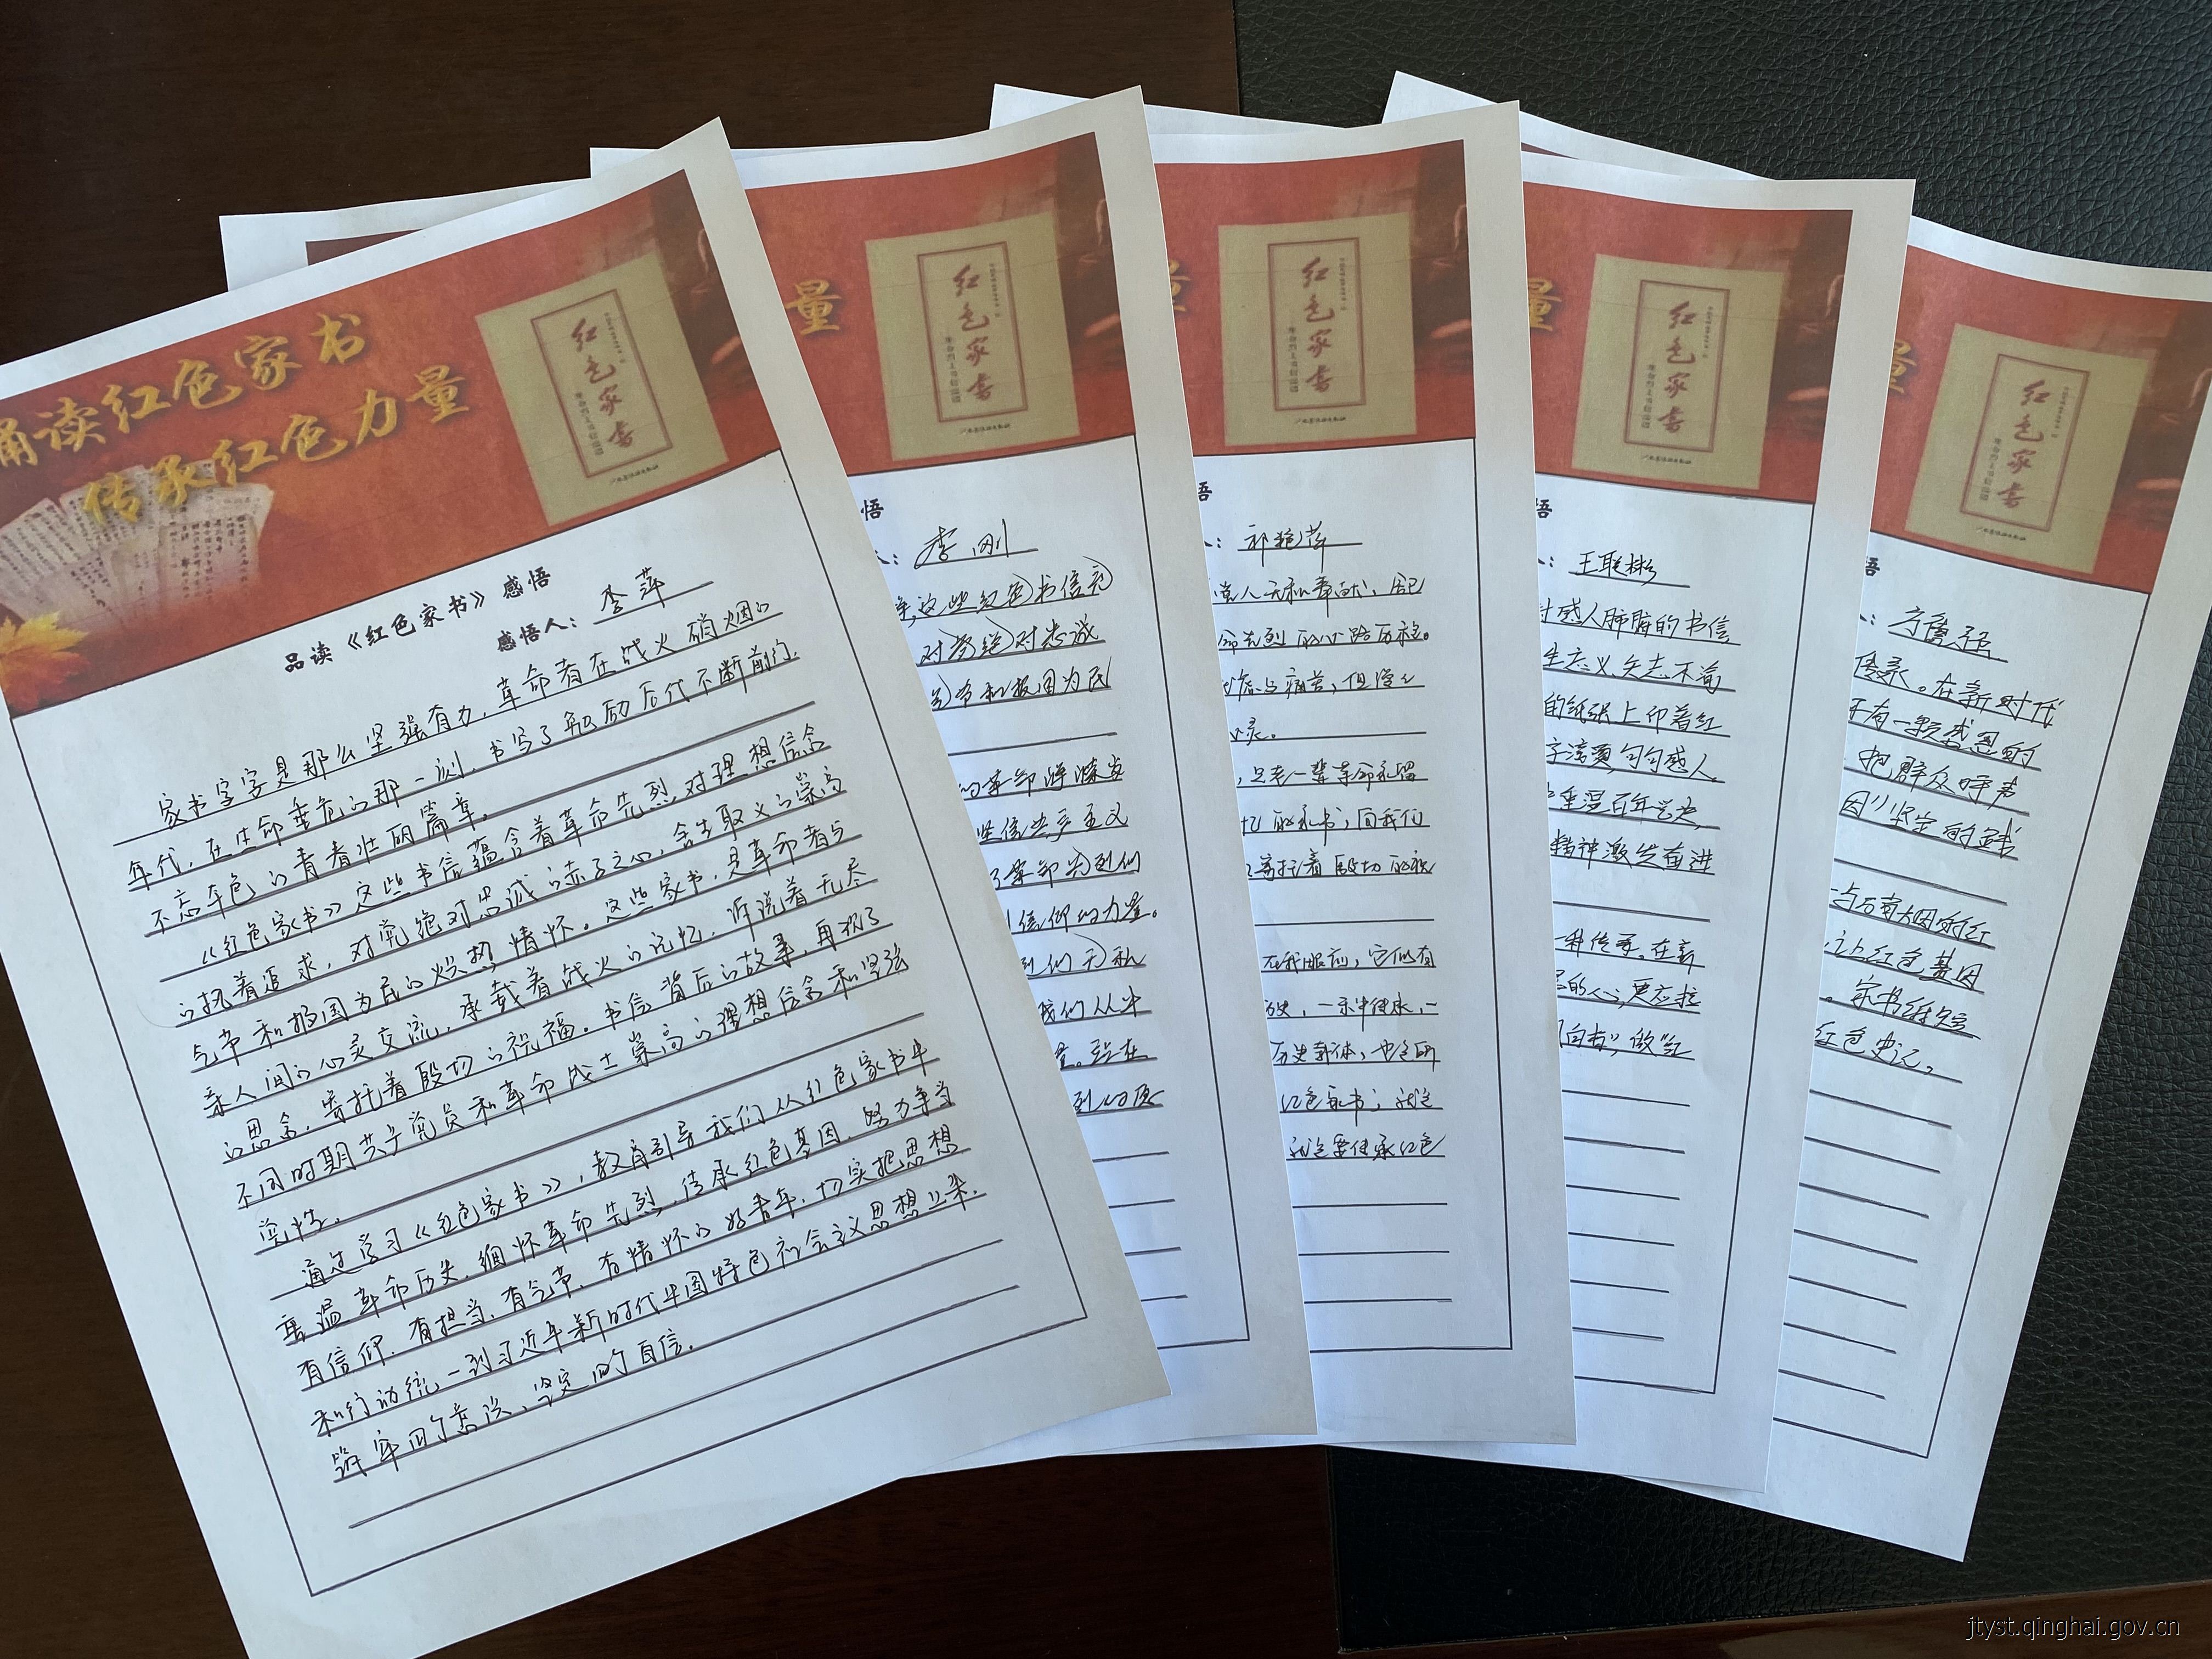 诵读红色家书
传承红色力量
红色家书
品读《红色家书》感悟
感悟人：李萍
家书字字是那么坚强有力，革命者在战火硝烟的
年代，在生命垂危的那一刻，书写了勉励后代不断前行、
不忘本色的青春壮丽篇章。
《红色家书》这些书信蕴含着革命先烈对理想信念
的执着追求，对党绝对忠诚的赤子之心，舍生取义的崇高
气节和报国为民的炽热情怀。这些家书，是革命者与
亲人间的心灵交流，承载着战火的记忆，诉说着无尽
的思念，寄托着殷切的祝福。书信背后的故事，再现了
不同时期共产党员和革命战士崇高的理想信念和坚强
党性。
通过学习《红色家书》，教育引导我们从红色家书中
重温革命历史，缅怀革命先烈，传承红色基因，努力争当
有信仰、有担当、有气节、有情怀的好青年，切实把思想
和行动统一到习近平新时代中国特色社会主义思想上来，
筑牢四个意识，坚定四个自信。
量
红色家书
悟
：李刚
这些红色书信充
对党绝对忠诚
节和报国为民
的革命锤炼
坚信共产主义
了革命先烈们
信仰的力量。
烈们无私
我们从中
红色家书
悟
：祁艳萍
党人无私奉献、
命先烈的心路历程。
与痛苦，但
录。
，是老一辈革命
的家书，向我们
寄托着殷切的祝
在我眼前，它似有
史，一示中传承，一
历史载体，也全面
红色家书；就是
就是要传承红色
量
红色家书
悟
：王联彬
封感人肺腑的书信
生主义，矢志不渝
的纸张上印着红
字滚烫，句句感人
重温百年
精神激发奋进
一种传承。在新
的人，更应
做"红
红色家书
悟
传承。在新时代
有一颗感恩的
把群众呼声
因"坚定的
让红色基因
。家书虽短
红色史记，
jtyst.qinghai.gov.cn